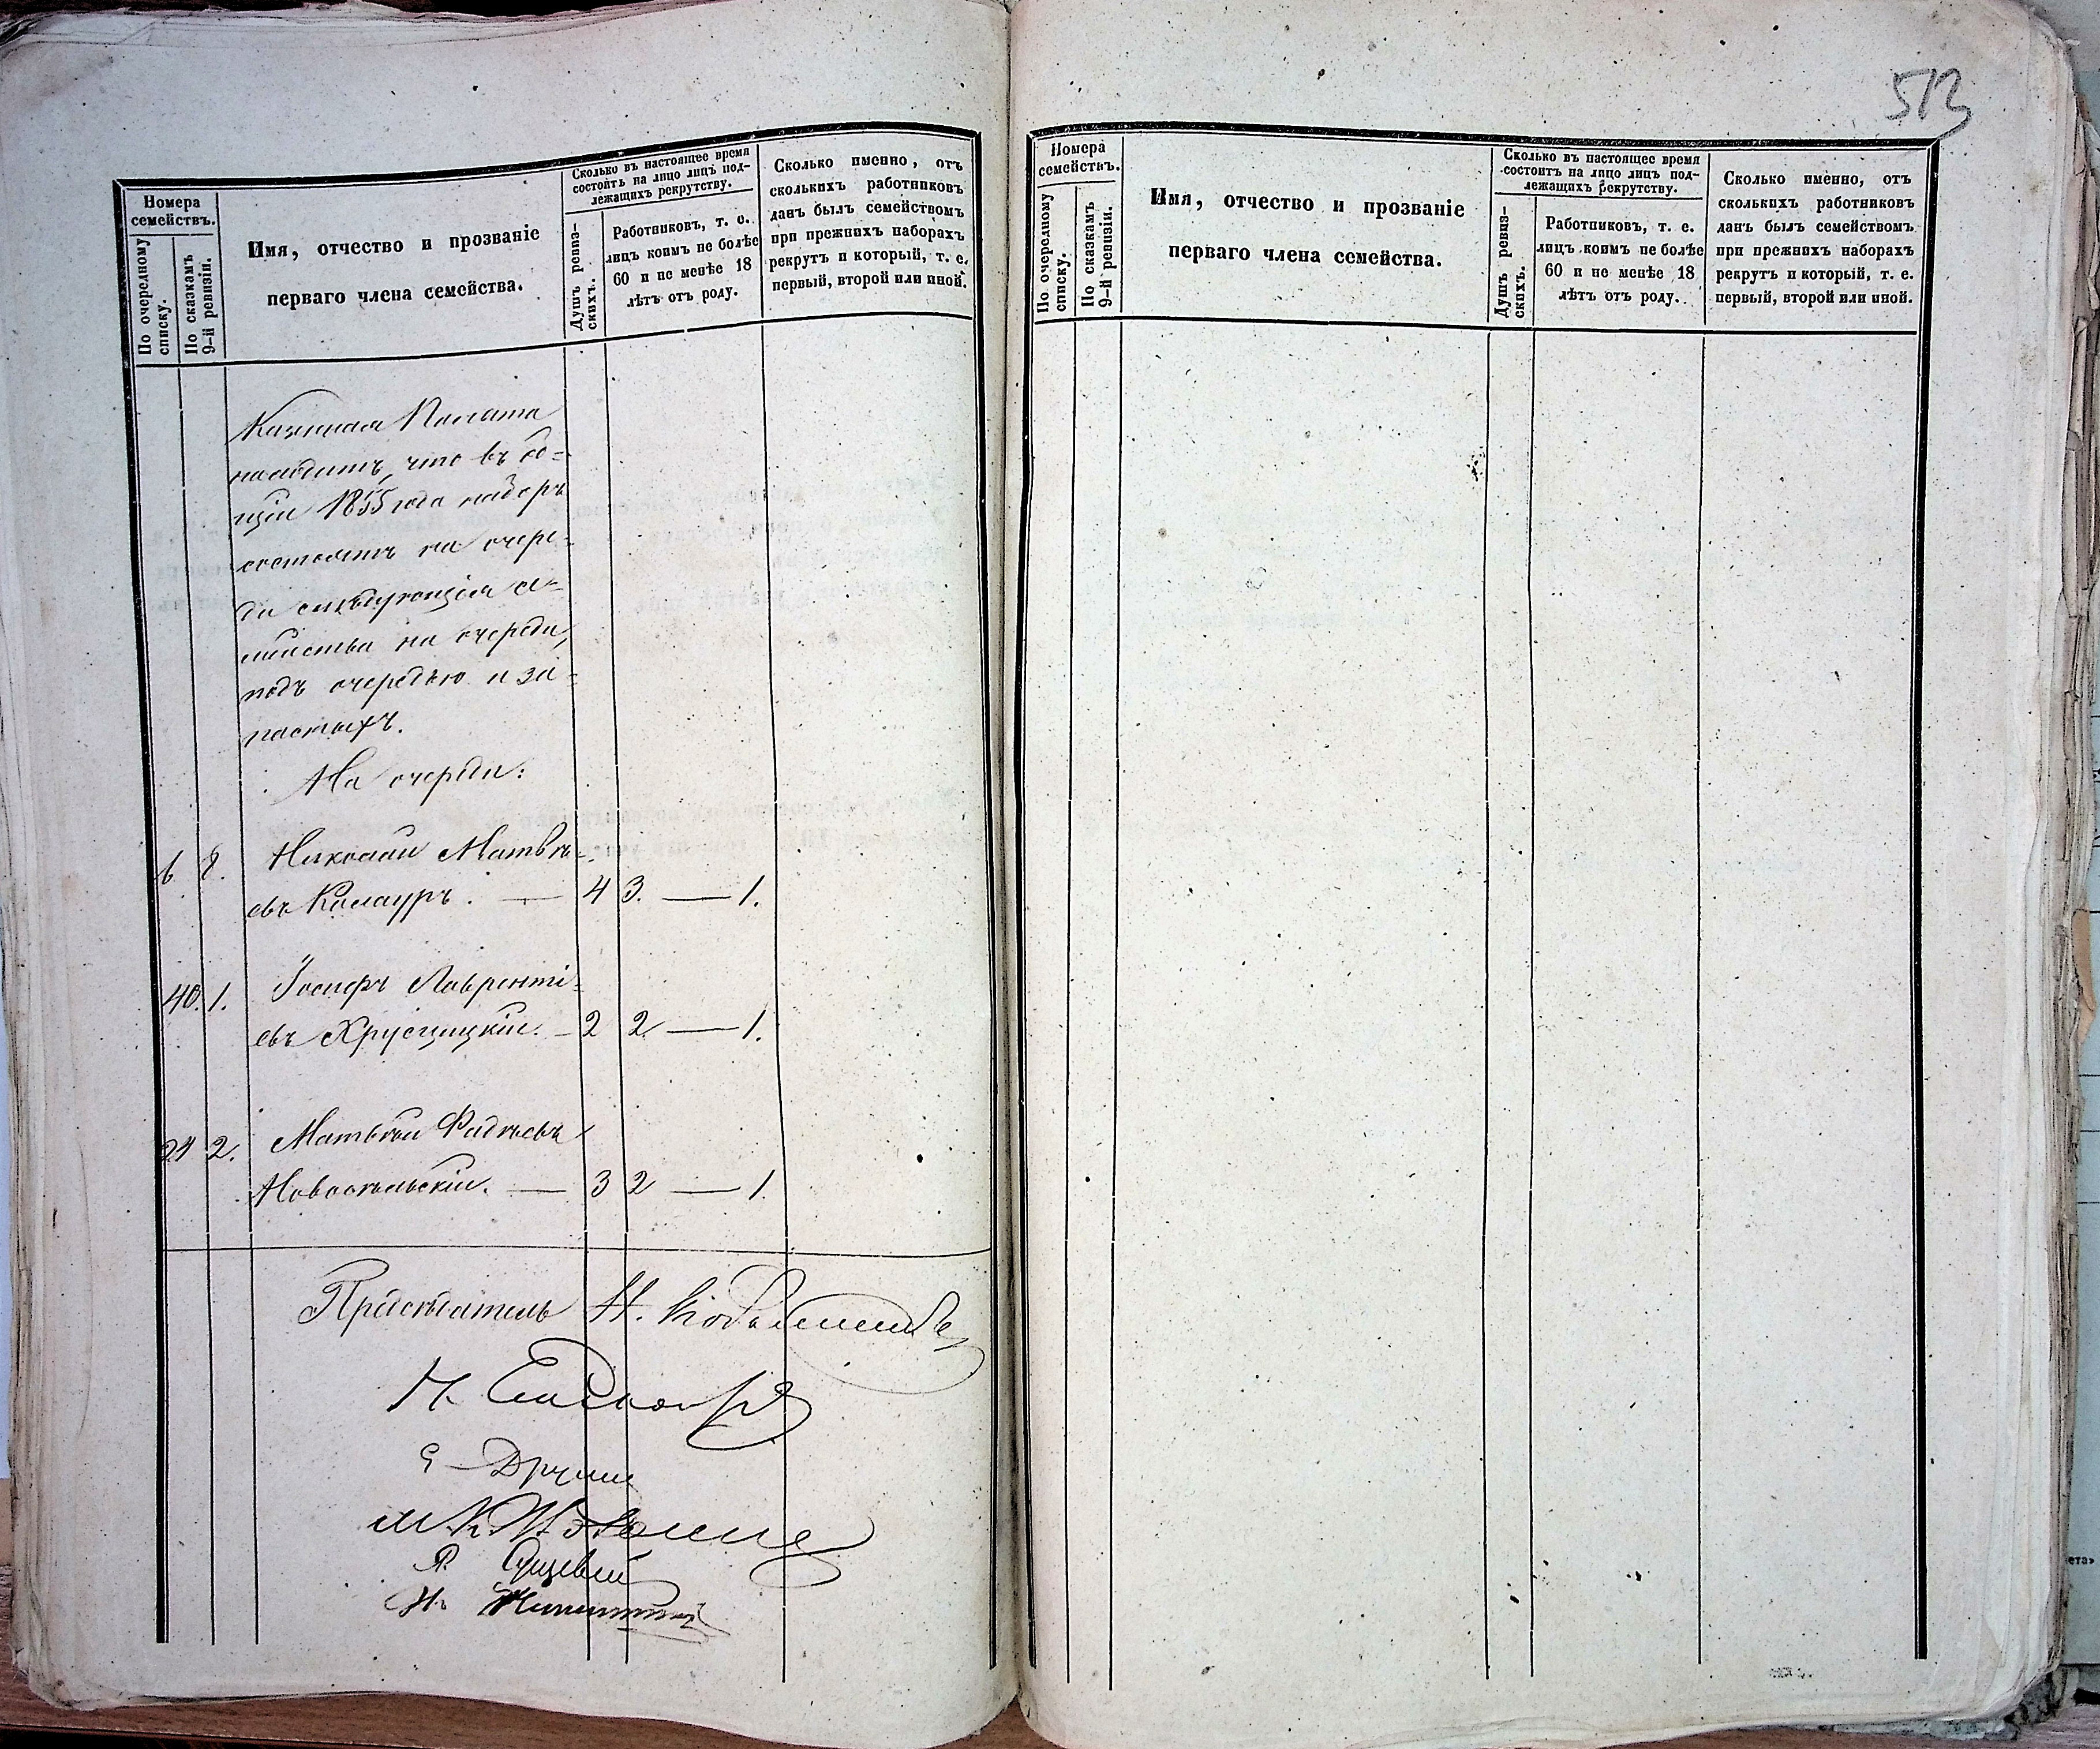 513
Номера
семействъ.
По очередному
списку.
По сказкамъ
9-й ревизіи.
Имя, отчество и прозваніе
перваго члена семейства.
Сколько въ настоящее время
состоитъ на лицо лицъ под-
лежащихъ рекрутству.
Душъ ревиз-
скихъ.
Работниковъ, т. е.
лицъ коимъ не болѣе
60 и не менѣе 18
лѣтъ отъ роду.
Сколько именно, отъ
сколькихъ работниковъ
данъ былъ семействомъ
при прежнихъ наборахъ
рекрутъ и который, т. е.
первый, второй или иной.
Казенная Палата
находитъ, что въ бу-
щій 1855 года наборъ
состоятъ на очере-
ди слѣдующія се-
мейства на очереди,
подъ очередью и за-
пасныхъ.
На очереди:
6 8. Николай Матвѣ-
евъ Калауръ. — 4 3. — 1.
40. 1. Іосифъ Лавренті-
евъ Хрусцицкій. — 2 2 — 1.
21 2. Матвѣй Фадѣевъ
Новосѣльскій. — 3 2 — 1.
Предсѣдатель Н.
Номера
семействъ.
По очередному
списку.
По сказкамъ
9-й ревизіи.
Имя, отчество и прозваніе
перваго члена семейства.
Сколько въ настоящее время
состоитъ на лицо лицъ под-
лежащихъ рекрутству.
Душъ ревиз-
скихъ.
Работниковъ, т. е.
лицъ коимъ не болѣе
60 и не менѣе 18
лѣтъ отъ роду.
Сколько именно, отъ
сколькихъ работниковъ
данъ былъ семействомъ
при прежнихъ наборахъ
рекрутъ и который, т. е.
первый, второй или иной.